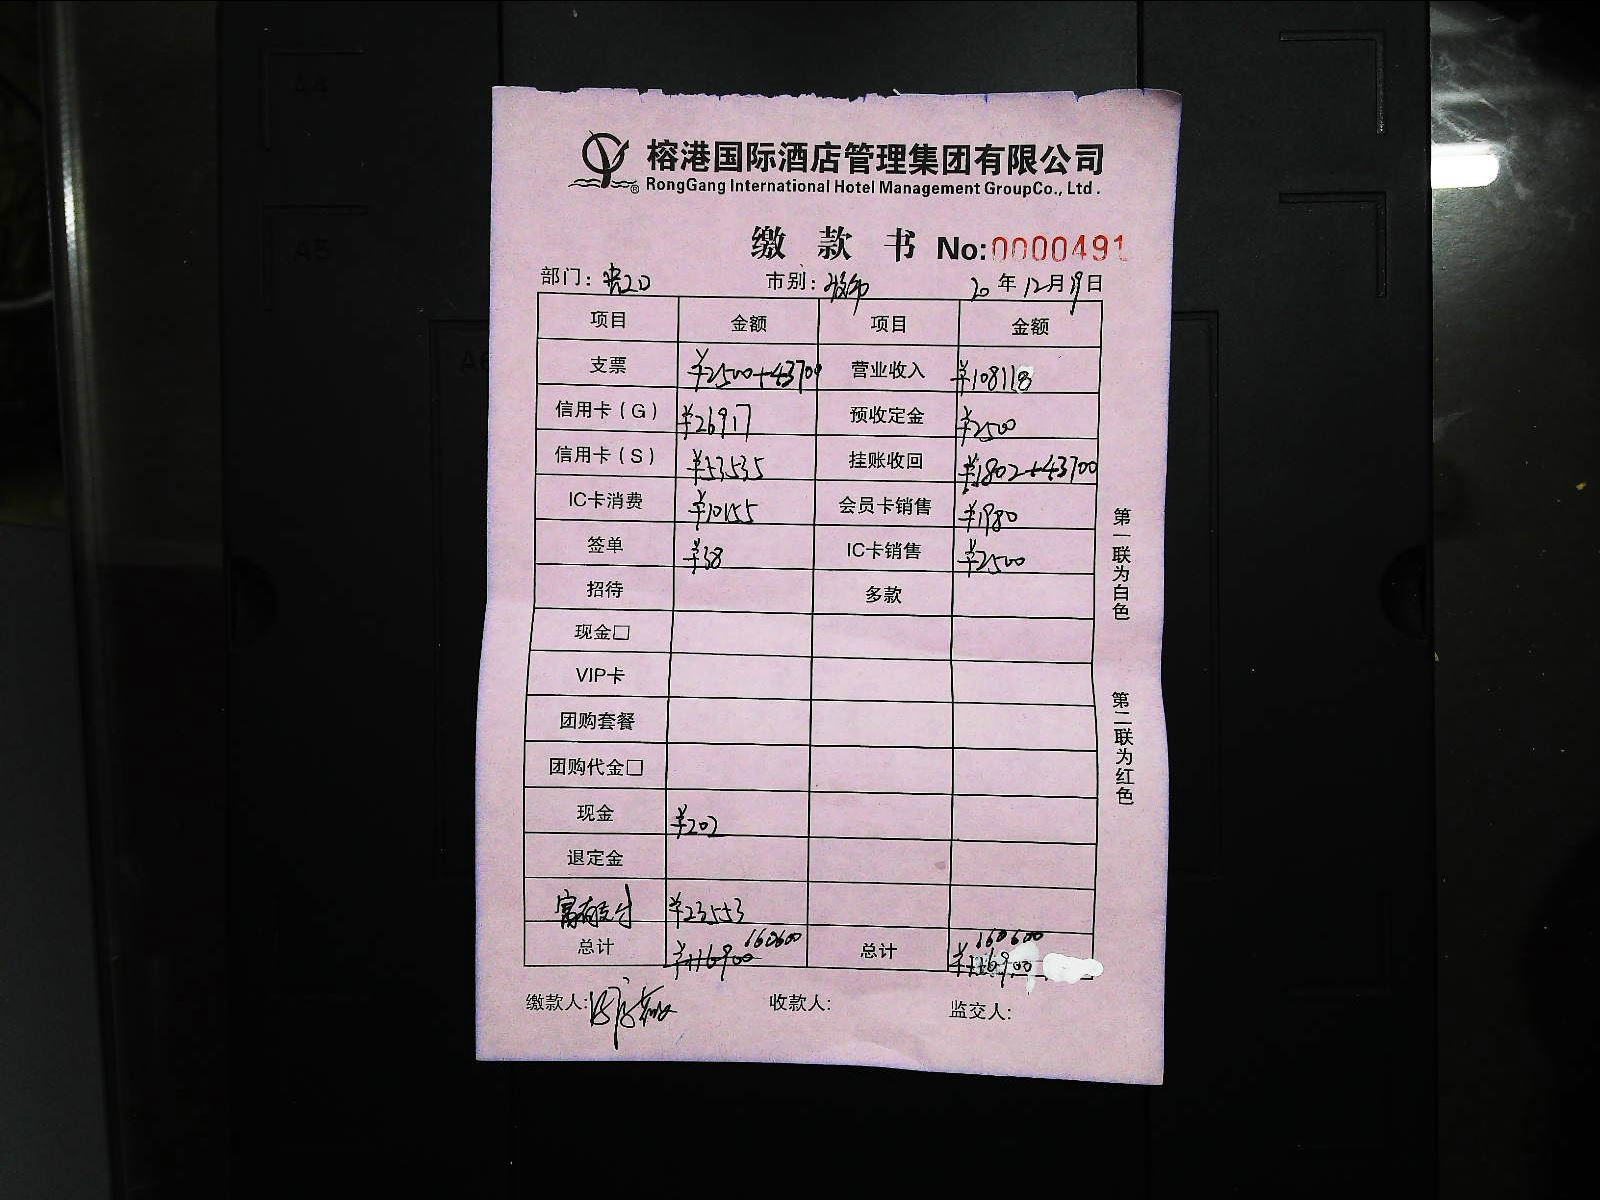 榕港国际酒店管理集团有限公司
® RongGang International Hotel Management GroupCo., Ltd.
缴 款 书 No:0000491
部门: 市别: 20 年 12 月 19 日
项目 金额 项目 金额
支票 ¥2500+43700 营业收入 ¥108118
信用卡(G) ¥26917 预收定金 ¥2500
信用卡(S) ¥53535 挂账收回 ¥1802+43700
IC卡消费 ¥10155 会员卡销售 ¥1980
签单 ¥38 IC卡销售 ¥2500
招待 多款
现金□
VIP卡
团购套餐
团购代金□
现金 ¥202
退定金
富有支付 ¥23553
总计 ¥116900 160600 总计 ¥116900 160600
缴款人: 收款人: 监交人:
第一联为白色
第二联为红色
A4
A5
A6